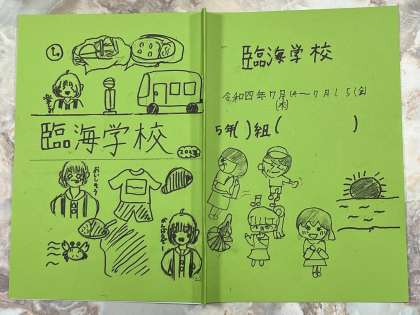 臨海学校
令和四年7月14〜7月15(金)
(木)
5年( )組( )
臨海学校